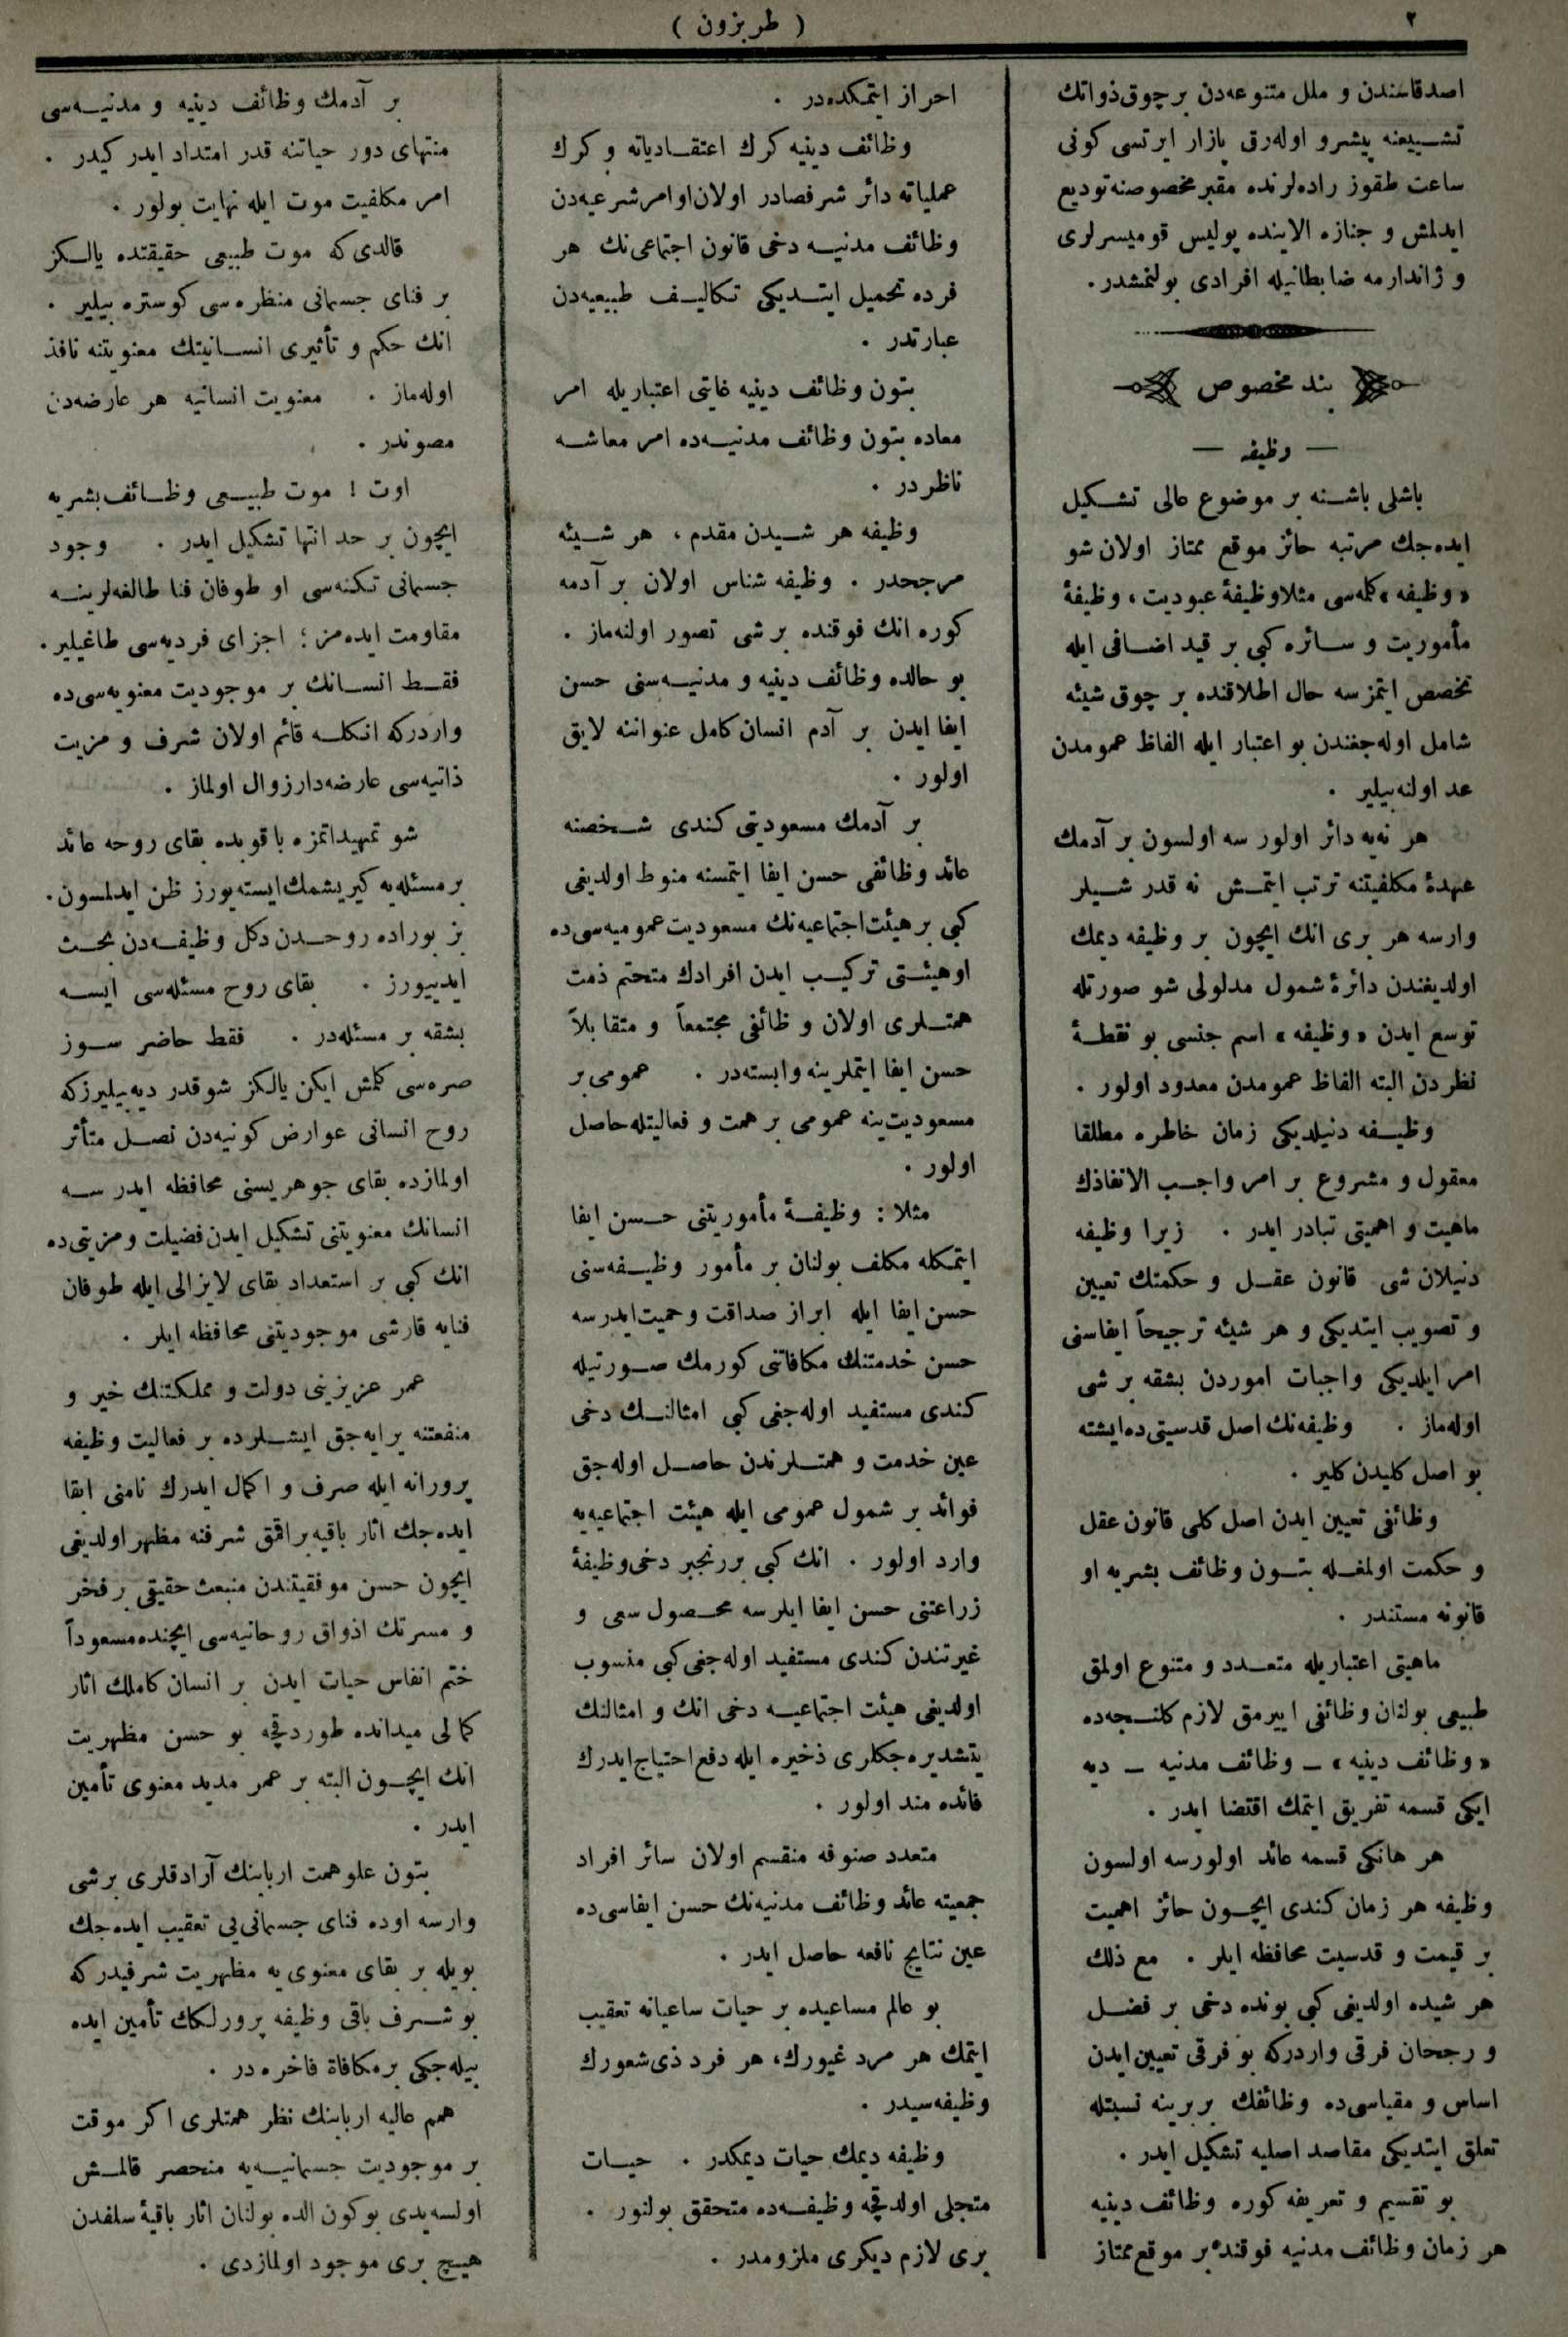 ٢
( طربزون )
اصدقاسندن و ملل متنوعه‌دن برچوق ذواتك
تشــييعنه پيشرو اوله‌رق بازار ايرتسى كونى
ساعت طقوز راده‌لرنده مقبر مخصوصنه توديع
ايدلمش و جنازه الاينده پوليس قوميسرلرى
و ژاندارمه ضابطانيله افرادى بولنمشدر.
بند مخصوص
— وظيفه —
باشلى باشــنه بر موضوع عالى تشــكيل
ايده‌جك مرتبه حائز موقع ممتاز اولان شو
«وظيفه» كله‌سى مثلا وظيفۀ عبوديت، وظيفۀ
مأموريت و ســائره كبى بر قيد اضــافى ايله
تخصص ايتمزسه حال اطلاقنده بر چوق شيئه
شامل اوله‌جغندن بو اعتبار ايله الفاظ عمومدن
عد اولنه‌بيلير .
هر نه‌يه دائر اولور سه اولسون بر آدمك
عهدۀ مكلفيتنه ترتب ايتمــش نه قدر شــيلر
وارسه هر برى انك ايچون بر وظيفه ديمك
اولديغندن دائرۀ شمول مدلولى شو صورتله
توسع ايدن «وظيفه» اسم جنسى بو نقطــۀ
نظردن البته الفاظ عمومدن معدود اولور .
وظيــفه دنيلديكى زمان خاطره مطلقا
معقول و مشروع بر امر واجــب الانفاذك
ماهيت و اهميتى تبادر ايدر . زيرا وظيفه
دنيلان شى قانون عقــل و حكمتك تعيين
و تصويب ايتديكى و هر شيئه ترجيحاً ايفاسنى
امر ايلديكى واجبات اموردن بشقه بر شى
اوله‌ماز . وظيفه‌نك اصل قدسيتى‌ده‌ايشته
بو اصل كليدن كلير .
وظائفى تعيين ايدن اصل كلى قانون عقل
و حكمت اولمغــله بتــون وظائف بشريه او
قانونه مستندر .
ماهيتى اعتباريله متعــدد و متنوع اولمق
طبيعى بولنان وظائفى اييرمق لازم كلنــجه‌ده
«وظائف دينيه» ــ وظائف مدنيه ــ ديه
ايكى قسمه تفريق ايتمك اقتضا ايدر .
هر هانكى قسمه عائد اولورسه اولسون
وظيفه هر زمان كندى ايچــون حائز اهميت
بر قيمت و قدسيت محافظه ايلر . مع ذلك
هر شيده اولديغى كبى بونده دخى بر فضــل
و رجحان فرقى واردركه بو فرقى تعيين ايدن
اساس و مقياسى‌ده وظائفك بربرينه نسبتله
تعلق ايتديكى مقاصد اصليه تشكيل ايدر .
بو تقسيم و تعريفه كوره وظائف دينيه
هر زمان وظائف مدنيه فوقنده بر موقع ممتاز
احراز ايتمكده‌در .
وظائف دينيه كرك اعتقــادياته و كرك
عملياته دائر شرفصادر اولان اوامر شرعيه‌دن
وظائف مدنيــه دخى قانون اجتماعى‌نك هر
فرده تحميل ايتــديكى تكاليــف طبيعيه‌دن
عبارتدر .
بتون وظائف دينيه غايتى اعتباريله امر
معاده بتون وظائف مدنيــه‌ده امر معاشــه
ناظردر .
وظيفه هر شــيدن مقدم ، هر شــيئه
مرجحدر . وظيفه شناس اولان بر آدمه
كوره انك فوقنده بر شى تصور اولنه‌ماز .
بو حالده وظائف دينيه و مدنيــه‌سنى حسن
ايفا ايدن بر آدم انسان كامل عنواننه لايق
اولور .
بر آدمك مسعوديتى كندى شــخصنه
عائد وظائفى حسن ايفا ايتمسنه منوط اولديغى
كبى بر هيئت اجتماعيه‌نك مسعوديت عموميه‌سى‌ده
اوهيئــتى تركيــب ايدن افرادك متحتم ذمت
همتــلرى اولان وظائفى مجتمعاً و متقابلاً
حسن ايفا ايتملرينه وابسته‌در . عمومى بر
مسعوديت ينه عمومى بر همت و فعاليتله حاصل
اولور .
مثلا : وظيفــۀ مأموريتنى حــسن ايفا
ايتمكله مكلف بولنان بر مأمور وظيــفه‌سنى
حسن ايفا ايله ابراز صداقت وحميت ايدرسه
حسن خدمتنك مكافاتنى كورمك صــورتيله
كندى مستفيد اوله‌جغى كبى امثالنــك دخى
عين خدمت و همتــلرندن حاصــل اوله‌جق
فوائد بر شمول عمومى ايله هيئت اجتماعيه‌يه
وارد اولور . انك كبى بر رنجبر دخى وظيفۀ
زراعتنى حسن ايفا ايلرسه محــصول سعى و
غيرتندن كندى مستفيد اوله‌جغى كبى منسوب
اولديغى هيئت اجتماعيــه دخى انك و امثالنك
يتشديره‌جكلرى ذخيره ايله دفع احتياج ايدرك
فائده مند اولور .
متعدد صنوفه منقسم اولان سائر افراد
جمعيته عائد وظائف مدنيه‌نك حسن ايفاسى‌ده
عين نتايج نافعه حاصل ايدر .
بو عالم مساعيده بر حيات ساعيانه تعقيب
ايتمك هر مرد غيورك، هر فرد ذى‌شعورك
وظيفه‌سيدر .
وظيفه ديمك حيات ديمكدر . حيــات
متجلى اولدقجه وظيفــه‌ده متحقق بولنور .
برى لازم ديكرى ملزومدر .
بر آدمك وظائف دينيه و مدنيــه‌سى
منتهاى دور حياتنه قدر امتداد ايدر كيدر .
امر مكلفيت موت ايله نهايت بولور .
قالدى كه موت طبيعى حقيقتده يالــكز
بر فناى جسمانى منظره‌سى كوستره بيلير .
انك حكم و تأثيرى انســانيتك معنويتنه نافذ
اوله‌ماز . معنويت انسانيه هر عارضه‌دن
مصوندر .
اوت ! موت طبيــعى وظــائف بشريه
ايچون بر حد انتها تشكيل ايدر . وجود
جسمانى تكنه‌سى او طوفان فنا طالغه‌لرينــه
مقاومت ايده‌مز ؛ اجزاى فرديه‌سى طاغيلير .
فقــط انســانك بر موجوديت معنويه‌سى‌ده
واردركه انكلــه قائم اولان شرف و مزيت
ذاتيه‌سى عارضه‌دار زوال اولماز .
شو تمهيداتمزه باقوبده بقاى روحه عائد
بر مسئله‌يه كيريشمك ايسته‌يورز ظن ايدلمسون.
بز بوراده روحــدن دكل وظيفــه‌دن بحــث
ايدييورز . بقاى روح مسئله‌سى ايســه
بشقه بر مسئله‌در . فقط حاضر ســوز
صره‌سى كلمش ايكن يالكز شو قدر ديه بيليرزكه
روح انسانى عوارض كونيه‌دن نصــل متأثر
اولمازده بقاى جوهريسنى محافظه ايدر ســه
انسانك معنويتنى تشكيل ايدن فضيلت و مزيتى‌ده
انك كبى بر استعداد بقاى لايزالى ايله طوفان
فنايه قارشى موجوديتنى محافظه ايلر .
عمر عزيزينى دولت و مملكتنك خير و
منفعتنه يرايه‌جق ايشــلرده بر فعاليت وظيفه
پرورانه ايله صرف و اكمال ايدرك نامنى ابقا
ايده‌جك اثار باقيه براقمق شرفنه مظهر اولديغى
ايچون حسن موفقيتندن منبعث حقيقى بر فخر
و مسرتك اذواق روحانيه‌سى ايچنده مسعوداً
ختم انفاس حيات ايدن بر انسان كاملك اثار
كمالى ميدانده طوردقجه بو حسن مظهريت
انك ايچــون البته بر عمر مديد معنوى تأمين
ايدر .
بتون علو همت اربابنك آرادقلرى برشى
وارسه اوده فناى جسمانى‌يى تعقيب ايده‌جك
بويله بر بقاى معنوى يه مظهريت شرفيدركه
بو شــرف باقى وظيفه پرورلكك تأمين ايده
بيله‌جكى بر مكافاة فاخره‌در .
همم عاليه اربابنك نظر همتلرى اكر موقت
بر موجوديت جسمانيــه‌يه منحصر قالمــش
اولسه‌يدى بوكون الده بولنان اثار باقيۀ سلفدن
هيــچ برى موجود اولمازدى .